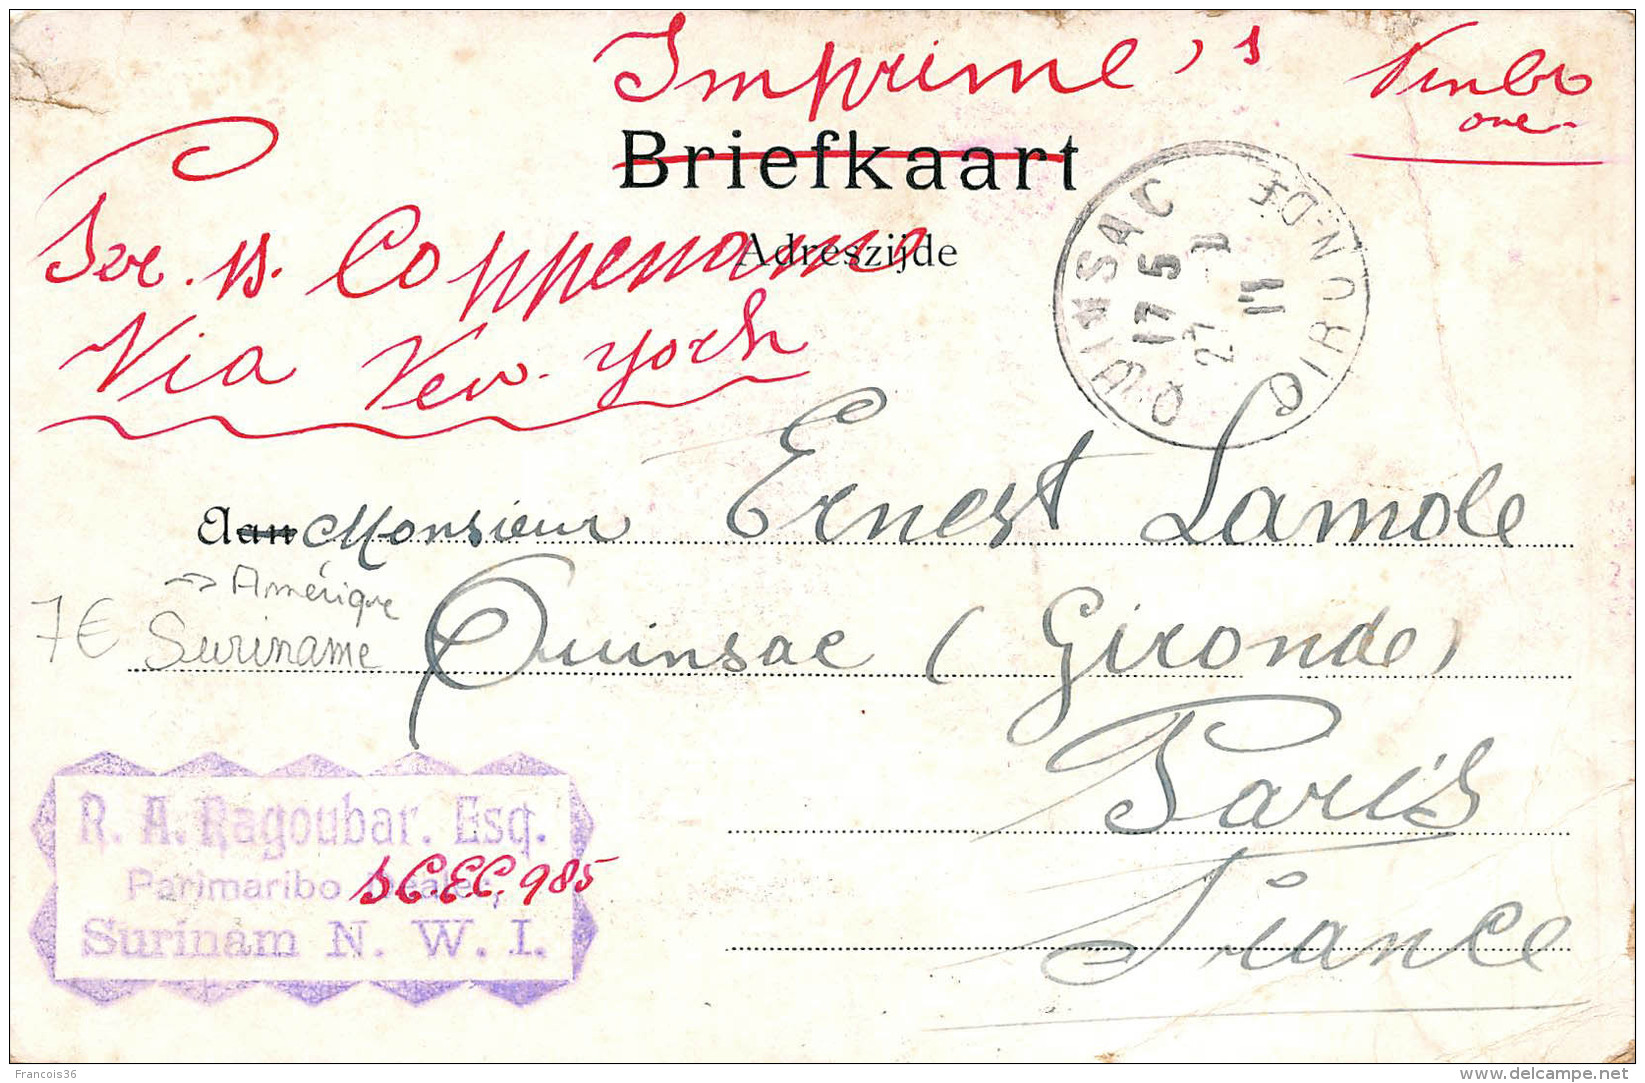 Imprimé's
Number
one
Briefkaart
Adreszijde
Per. ss. Coppename
Via New-york
QUINSAC
GIRONDE
17 5
27 - 1
11
Aan Monsieur Ernest Lamole
→ Amérique
7€ Suriname
Quinsac (Gironde)
Paris
France
R. A. Ragoubar. Esq.
Parimaribo Dealer,
SCEC, 985
Surinam N. W. I.
Francois36
www.delcampe.net